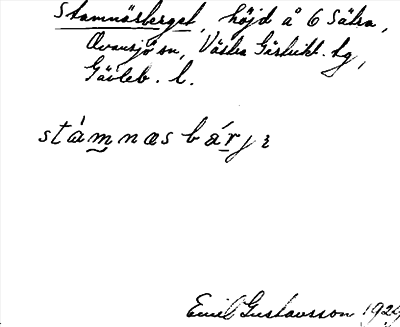 Stamnäsberget, höjd å 6 Sätra,
Ovansjö sn, Västra Gästrikl. tg,
Gävleb. l.
stàmnæs bárjɪ
Emil Gustavsson 1929